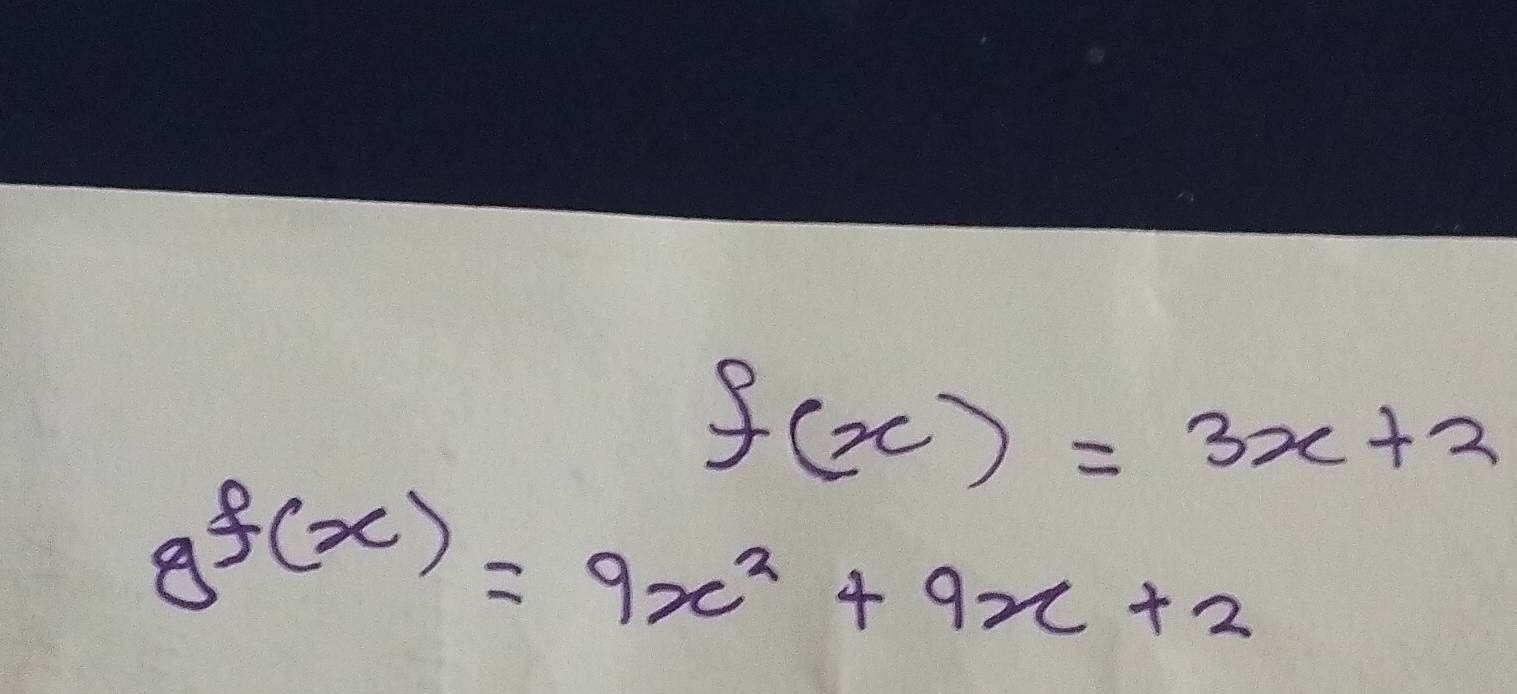 f(x) = 3x + 2
gf(x) = 9x² + 9x + 2